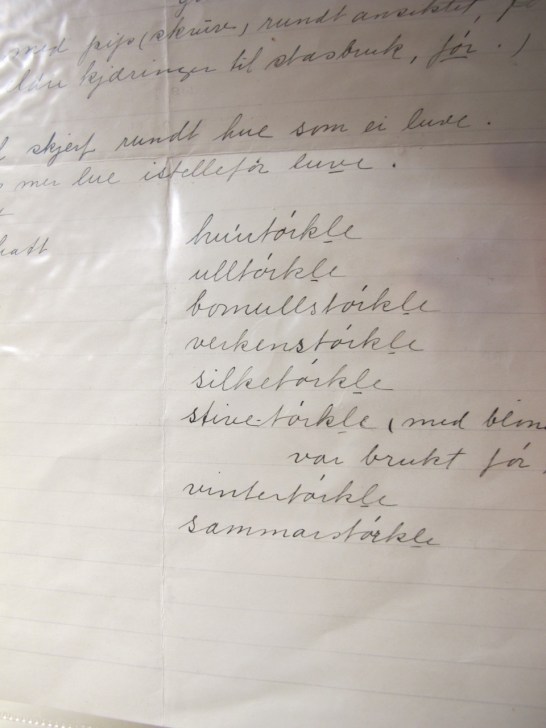 med pip (skruv) rundt ansiktet,
kjdringer til stasbruk, før.)
skjerf rundt hue som ei luve.
mer lue istellefór luve.
hatt
huvtórkle
ulltórkle
bomullstórkle
verkenstórkle
silketórkle
stive-tórkle (med
var brukt fór
vintertórkle
sammarstórkle